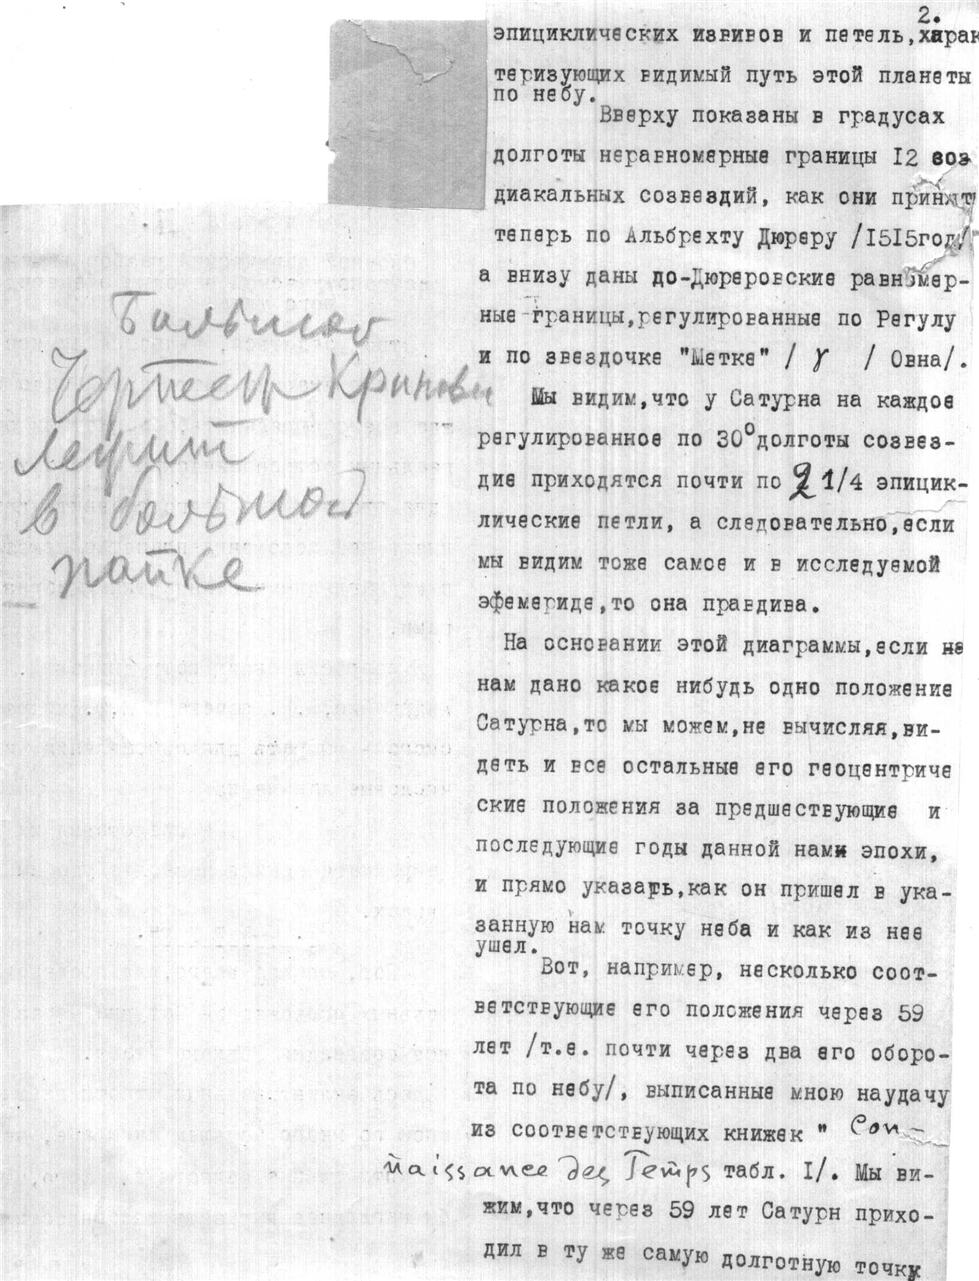 2.
эпициклических извивов и петель,харак
теризующих видимый путь этой планеты
по небу.
Вверху показаны в градусах
долготы неравномерные границы I2 воз
диакальных созвездий, как они принят
теперь по Альбрехту Дюреру /I5I5год/
а внизу даны до-Дюреровские равномер-
ные границы,регулированные по Регулу
и по звездочке "Метке" / γ / Овна/.
Мы видим,что у Сатурна на каждое
регулированное по 30°долготы созвез-
дие приходятся почти по 2 1/4 эпицик-
лические петли, а следовательно,если
мы видим тоже самое и в исследуемой
эфемериде,то она правдива.
На основании этой диаграммы,если не
нам дано какое нибудь одно положение
Сатурна,то мы можем,не вычисляя,ви-
деть и все остальные его геоцентриче
ские положения за предшествующие и
последующие годы данной нами эпохи,
и прямо указать,как он пришел в ука-
занную нам точку неба и как из нее
ушел.
Вот, например, несколько соот-
ветствующие его положения через 59
лет /т.е. почти через два его оборо-
та по небу/, выписанные мною наудачу
из соответствующих книжек " Con-
naissance des Temps табл. I/. Мы ви-
жим,что через 59 лет Сатурн прихо-
дил в ту же самую долготную точку
Большой
Чертеж
лежит
в большой
папке